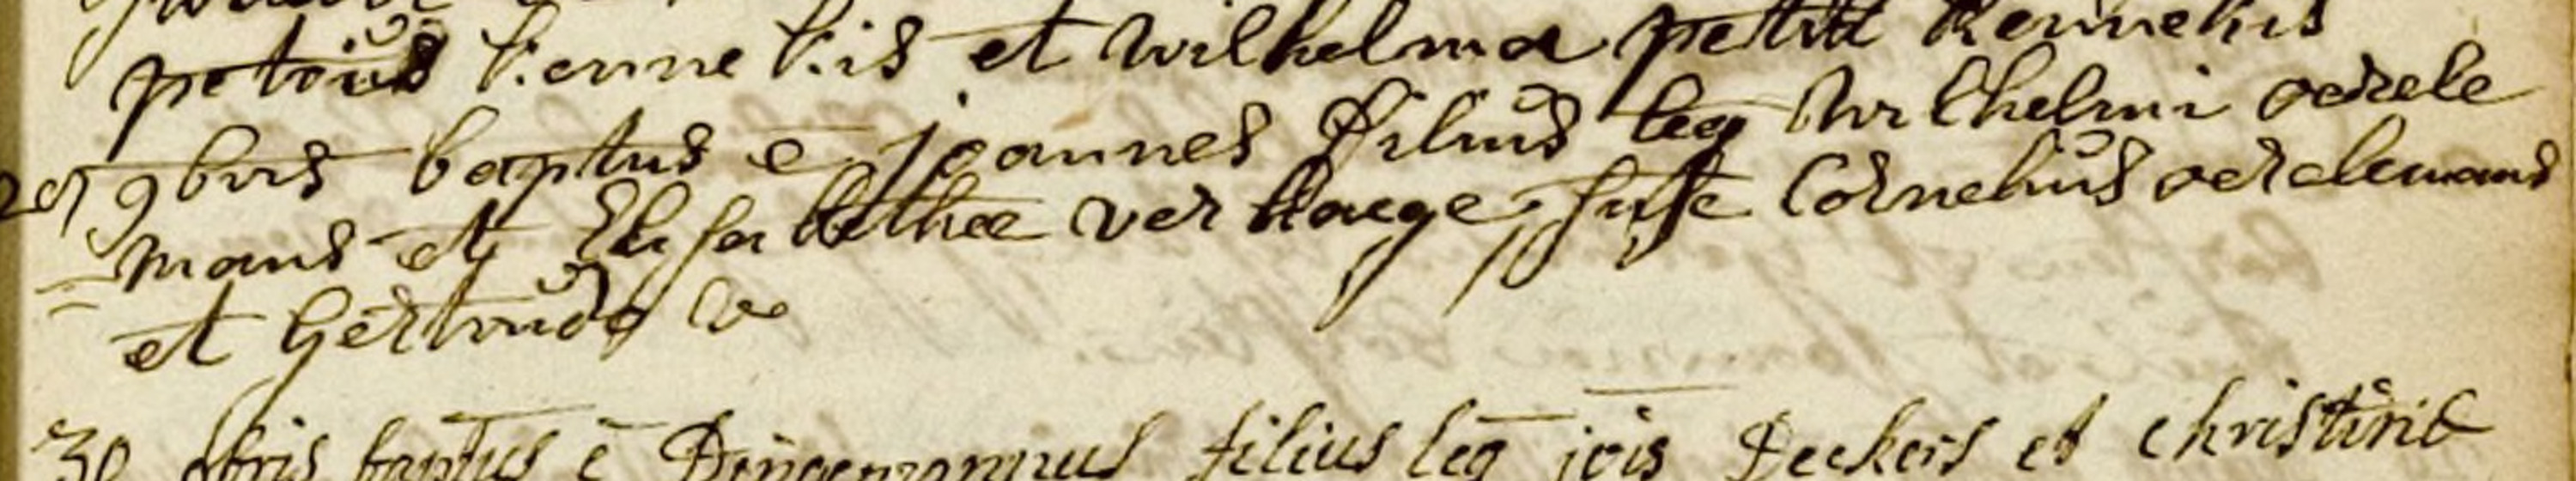 petrus kennekis et wilhelma petri kennekis
29 9bris baptus ē joannes filius leg wilhelmi verele
mans et Elisabethae verhaege, susc Cornelius verelemans
et Gertrudo ve
30 9bris baptus ē Dingemannus filius leg jōis Deckers et christinæ